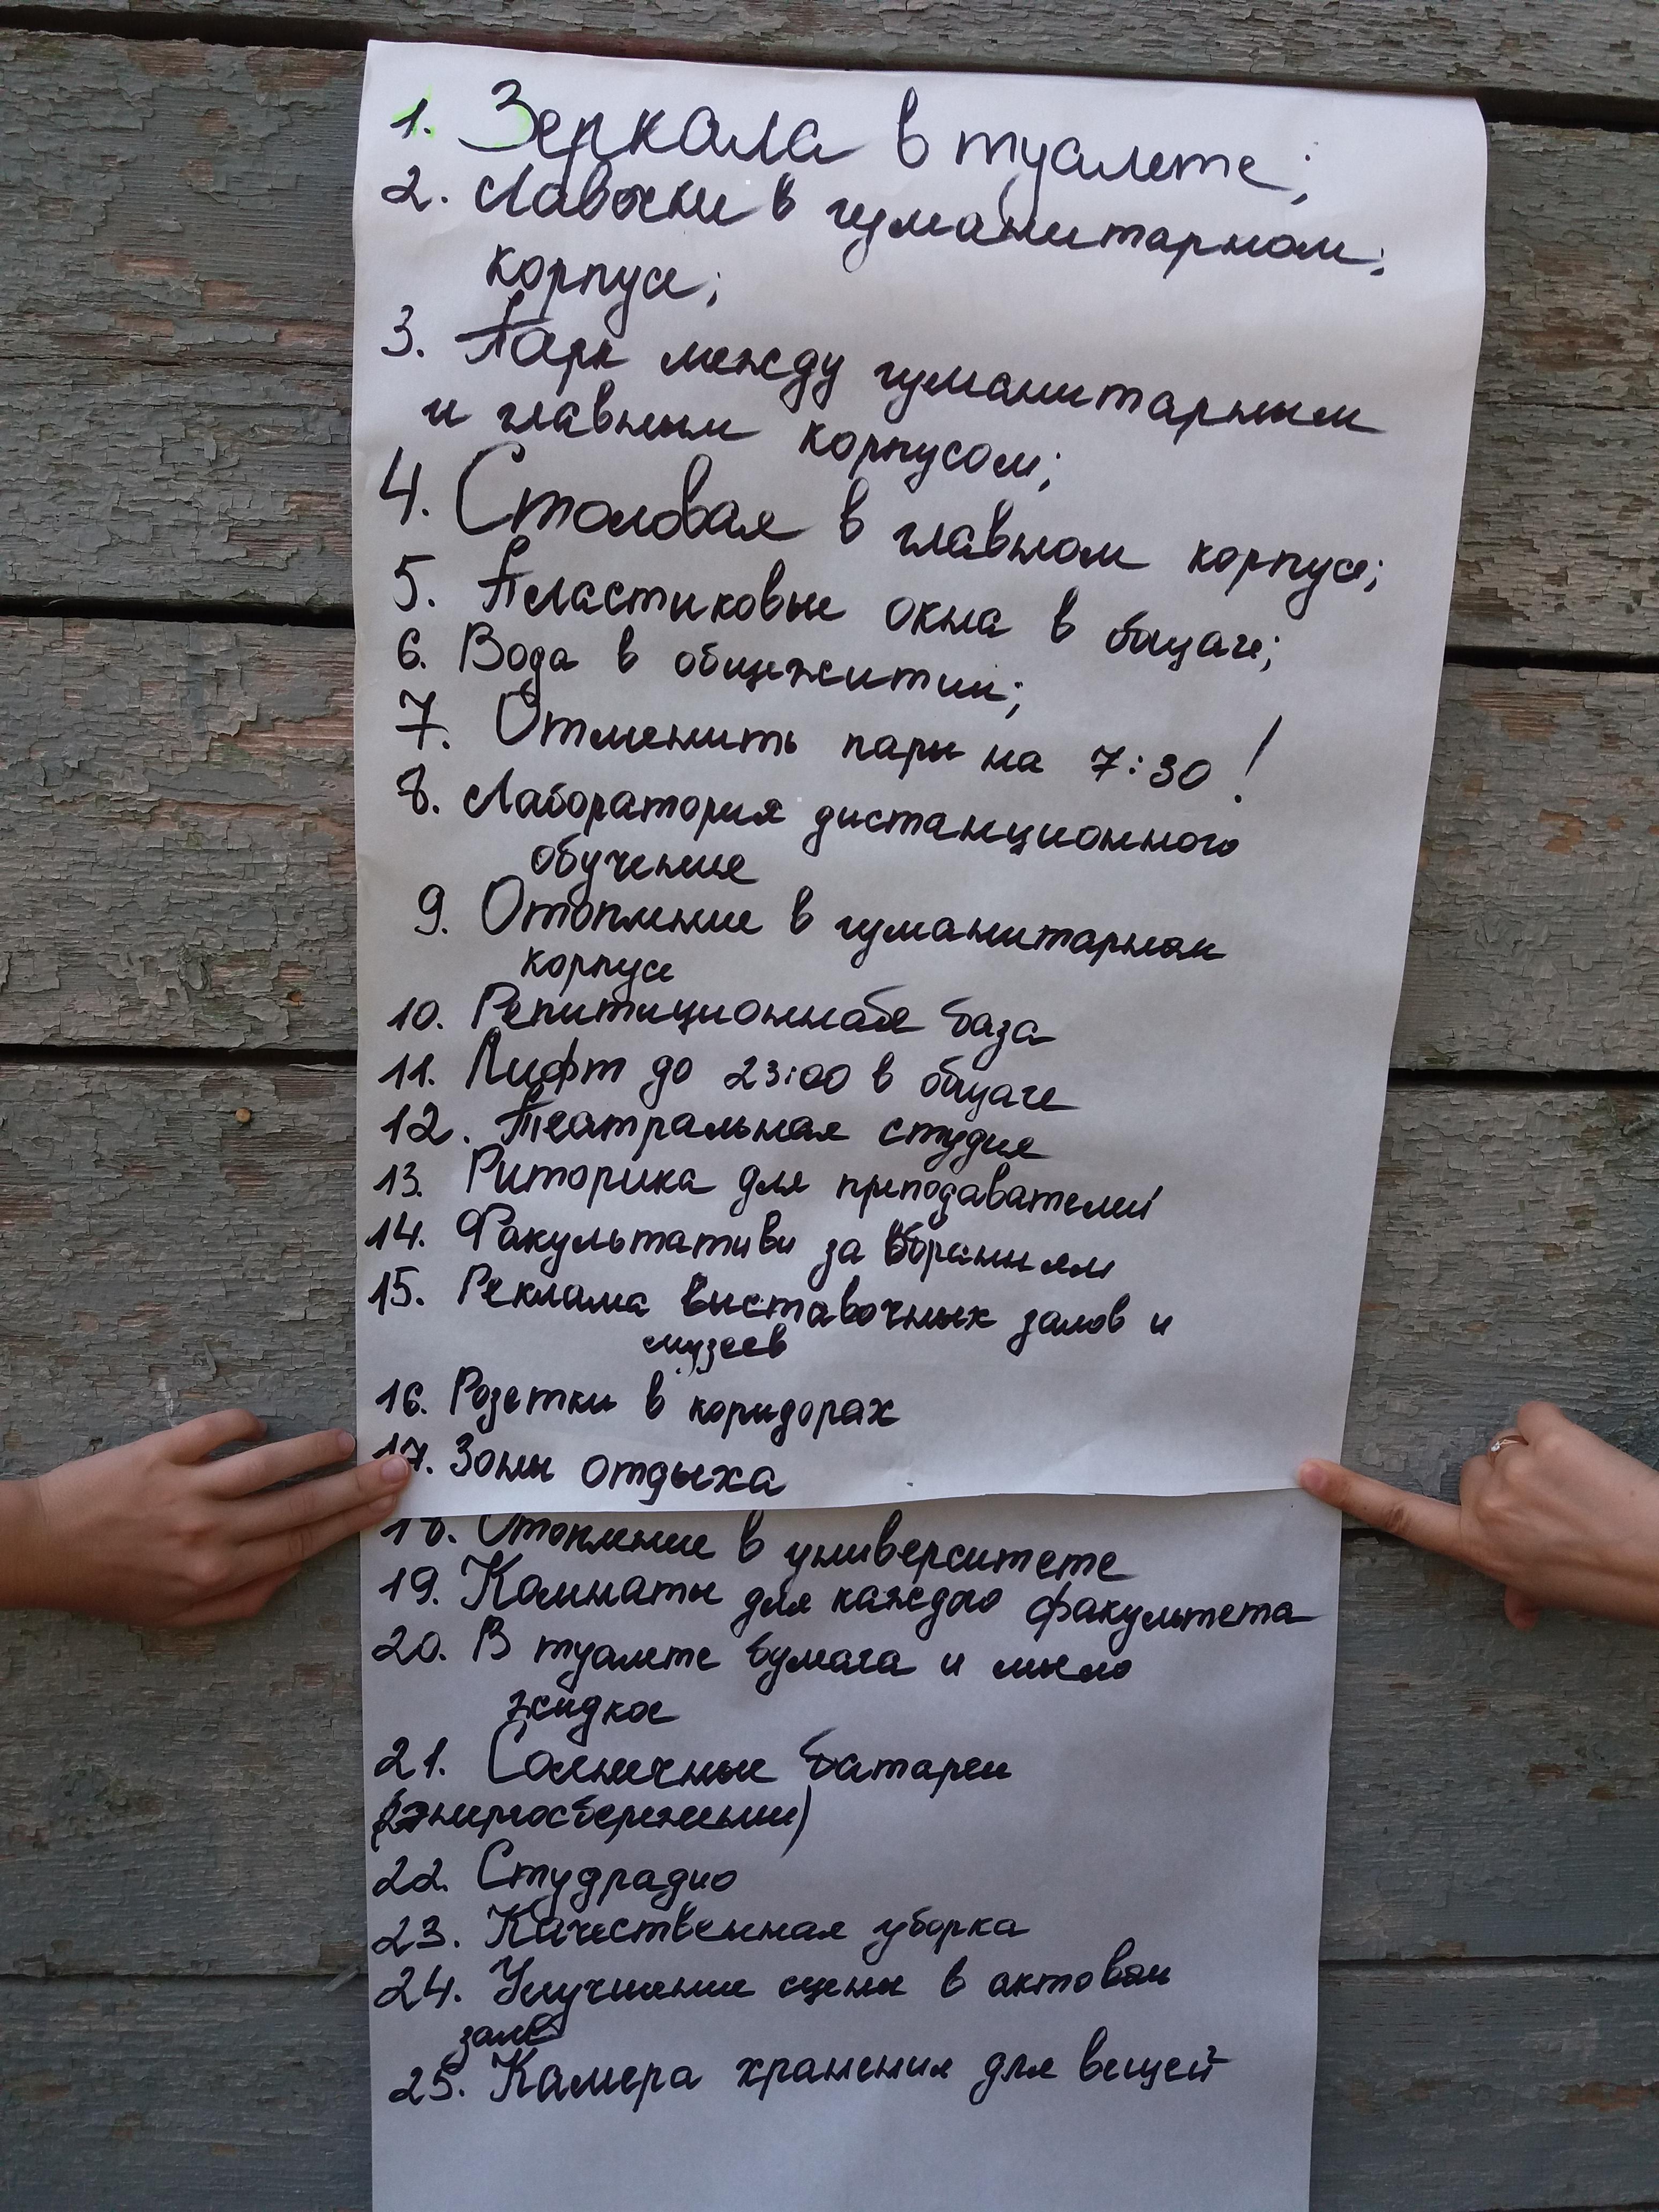 1. Зеркала в туалете;
2. Лавочки в гуманитарном;
корпусе;
3. Парк между гуманитарным
и главным корпусом;
4. Столовая в главном корпусе;
5. Пластиковые окна в общаге;
6. Вода в общежитии;
7. Отменить пары на 7:30!
8. Лаборатория дистанционного
обучения
9. Отопление в гуманитарном
корпусе
10. Репитиционная база
11. Лифт до 23:00 в общаге
12. Театральная студия
13. Риторика для преподавателей
14. Факультативи за вбранням
15. Реклама выставочных залов и
музеев
16. Розетки в коридорах
17. Зоны отдыха
18. Отопление в университете
19. Комнаты для каждого факультета
20. В туалете бумага и мыло
жидкое
21. Солнечные батареи
(энергосбережении)
22. Студрадио
23. Качественная уборка
24. Улучшение сцены в актовом
зале
25. Камера хранения для вещей